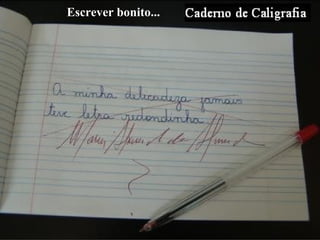 Escrever bonito... Caderno de Caligrafia
A minha delicadeza jamais
teve letra redondinha.